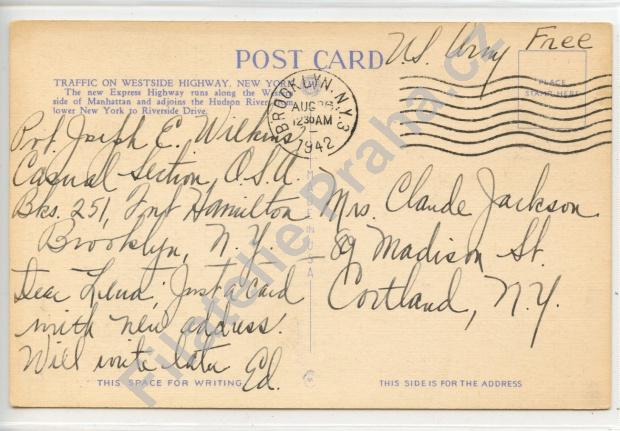 POST CARD
U.S. Army Free
TRAFFIC ON WESTSIDE HIGHWAY, NEW YORK CITY
The new Express Highway runs along the West
side of Manhattan and adjoins the Hudson River from
lower New York to Riverside Drive.
BROOKLYN, N.Y. 3
AUG
1230AM
1942
PLACE
STAMP HERE
Pvt. Joseph E. Wilkins
Casual Section, O.S.U.
Bks. 251, Fort Hamilton
Brooklyn, N.Y.
Dear Lena; Just a card
with new address.
Will write later
Ed.
MADE IN U.S.A.
Mrs. Claude Jackson
89 Madison St.
Cortland, N.Y.
THIS SPACE FOR WRITING
THIS SIDE IS FOR THE ADDRESS
Filatelie Praha.cz